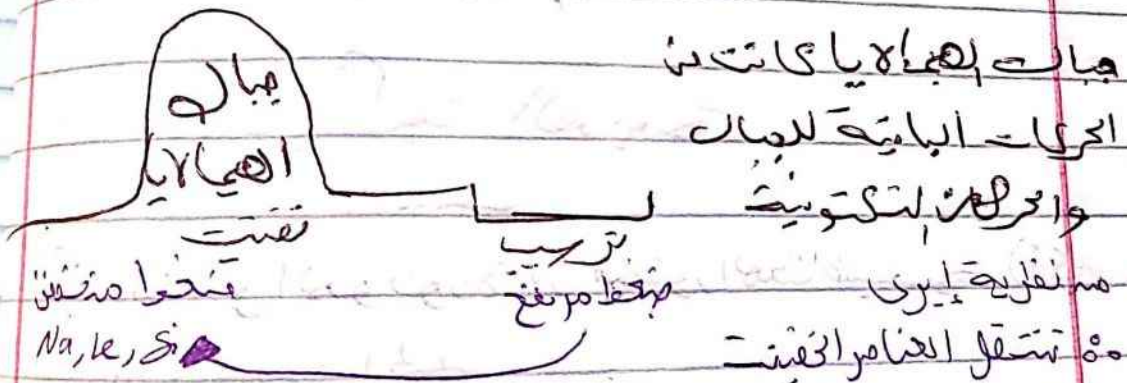 جبال الهيمالايا كانت من
الحركات البانية للجبال
والحركات التكتونية
من نظرية إيرى
∴ تنتقل العناصر الخفيفة
جبال
الهيمالايا
تفتت
ترسيب
ضغط مرتفع
ضغط منخفض
Na, Le, Si